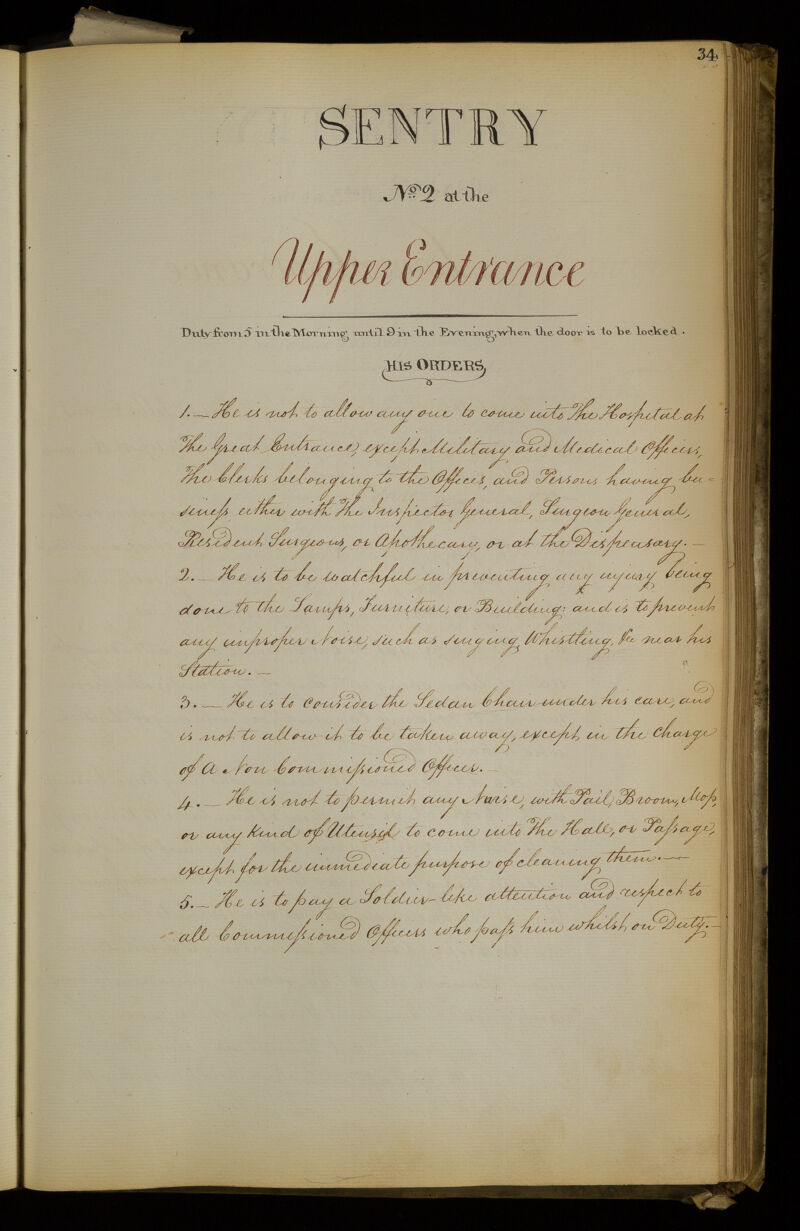 34
SENTRY
No. 2 at the
Upper Entrance
Duty from 5 in the Morning, until 9 in the Evening, when the door is to be locked.
HIS ORDERS,
1. — He is not to allow any one to come into The Hospital at
The Great Entrance, except Military and Medical Officers,
The Clerks belonging to the Offices, and Persons having bu=
siness either with The Inspector General, Surgeon General,
Resident Surgeons, or Apothecary, or at the Dispensary. —
2. — He is to be watchful in preventing any injury being
done to the Lamps, Furniture, or Building: and is to prevent
any improper Noise, such as singing, Whistling, &c near his
Station. —
3. — He is to consider the Sedan Chair under his care, and
is not to allow it to be taken away, except in the charge
of a Non Commissioned Officer. —
4. — He is not to permit any Nurse, with Pail, Broom, Mop,
or any kind of Utensil to come into The Hall, or Passage,
except for the immediate purpose of cleaning them. —
5. — He is to pay a Soldier-like attention and respect to
all Commissioned Officers who pass him whilst on Duty. —